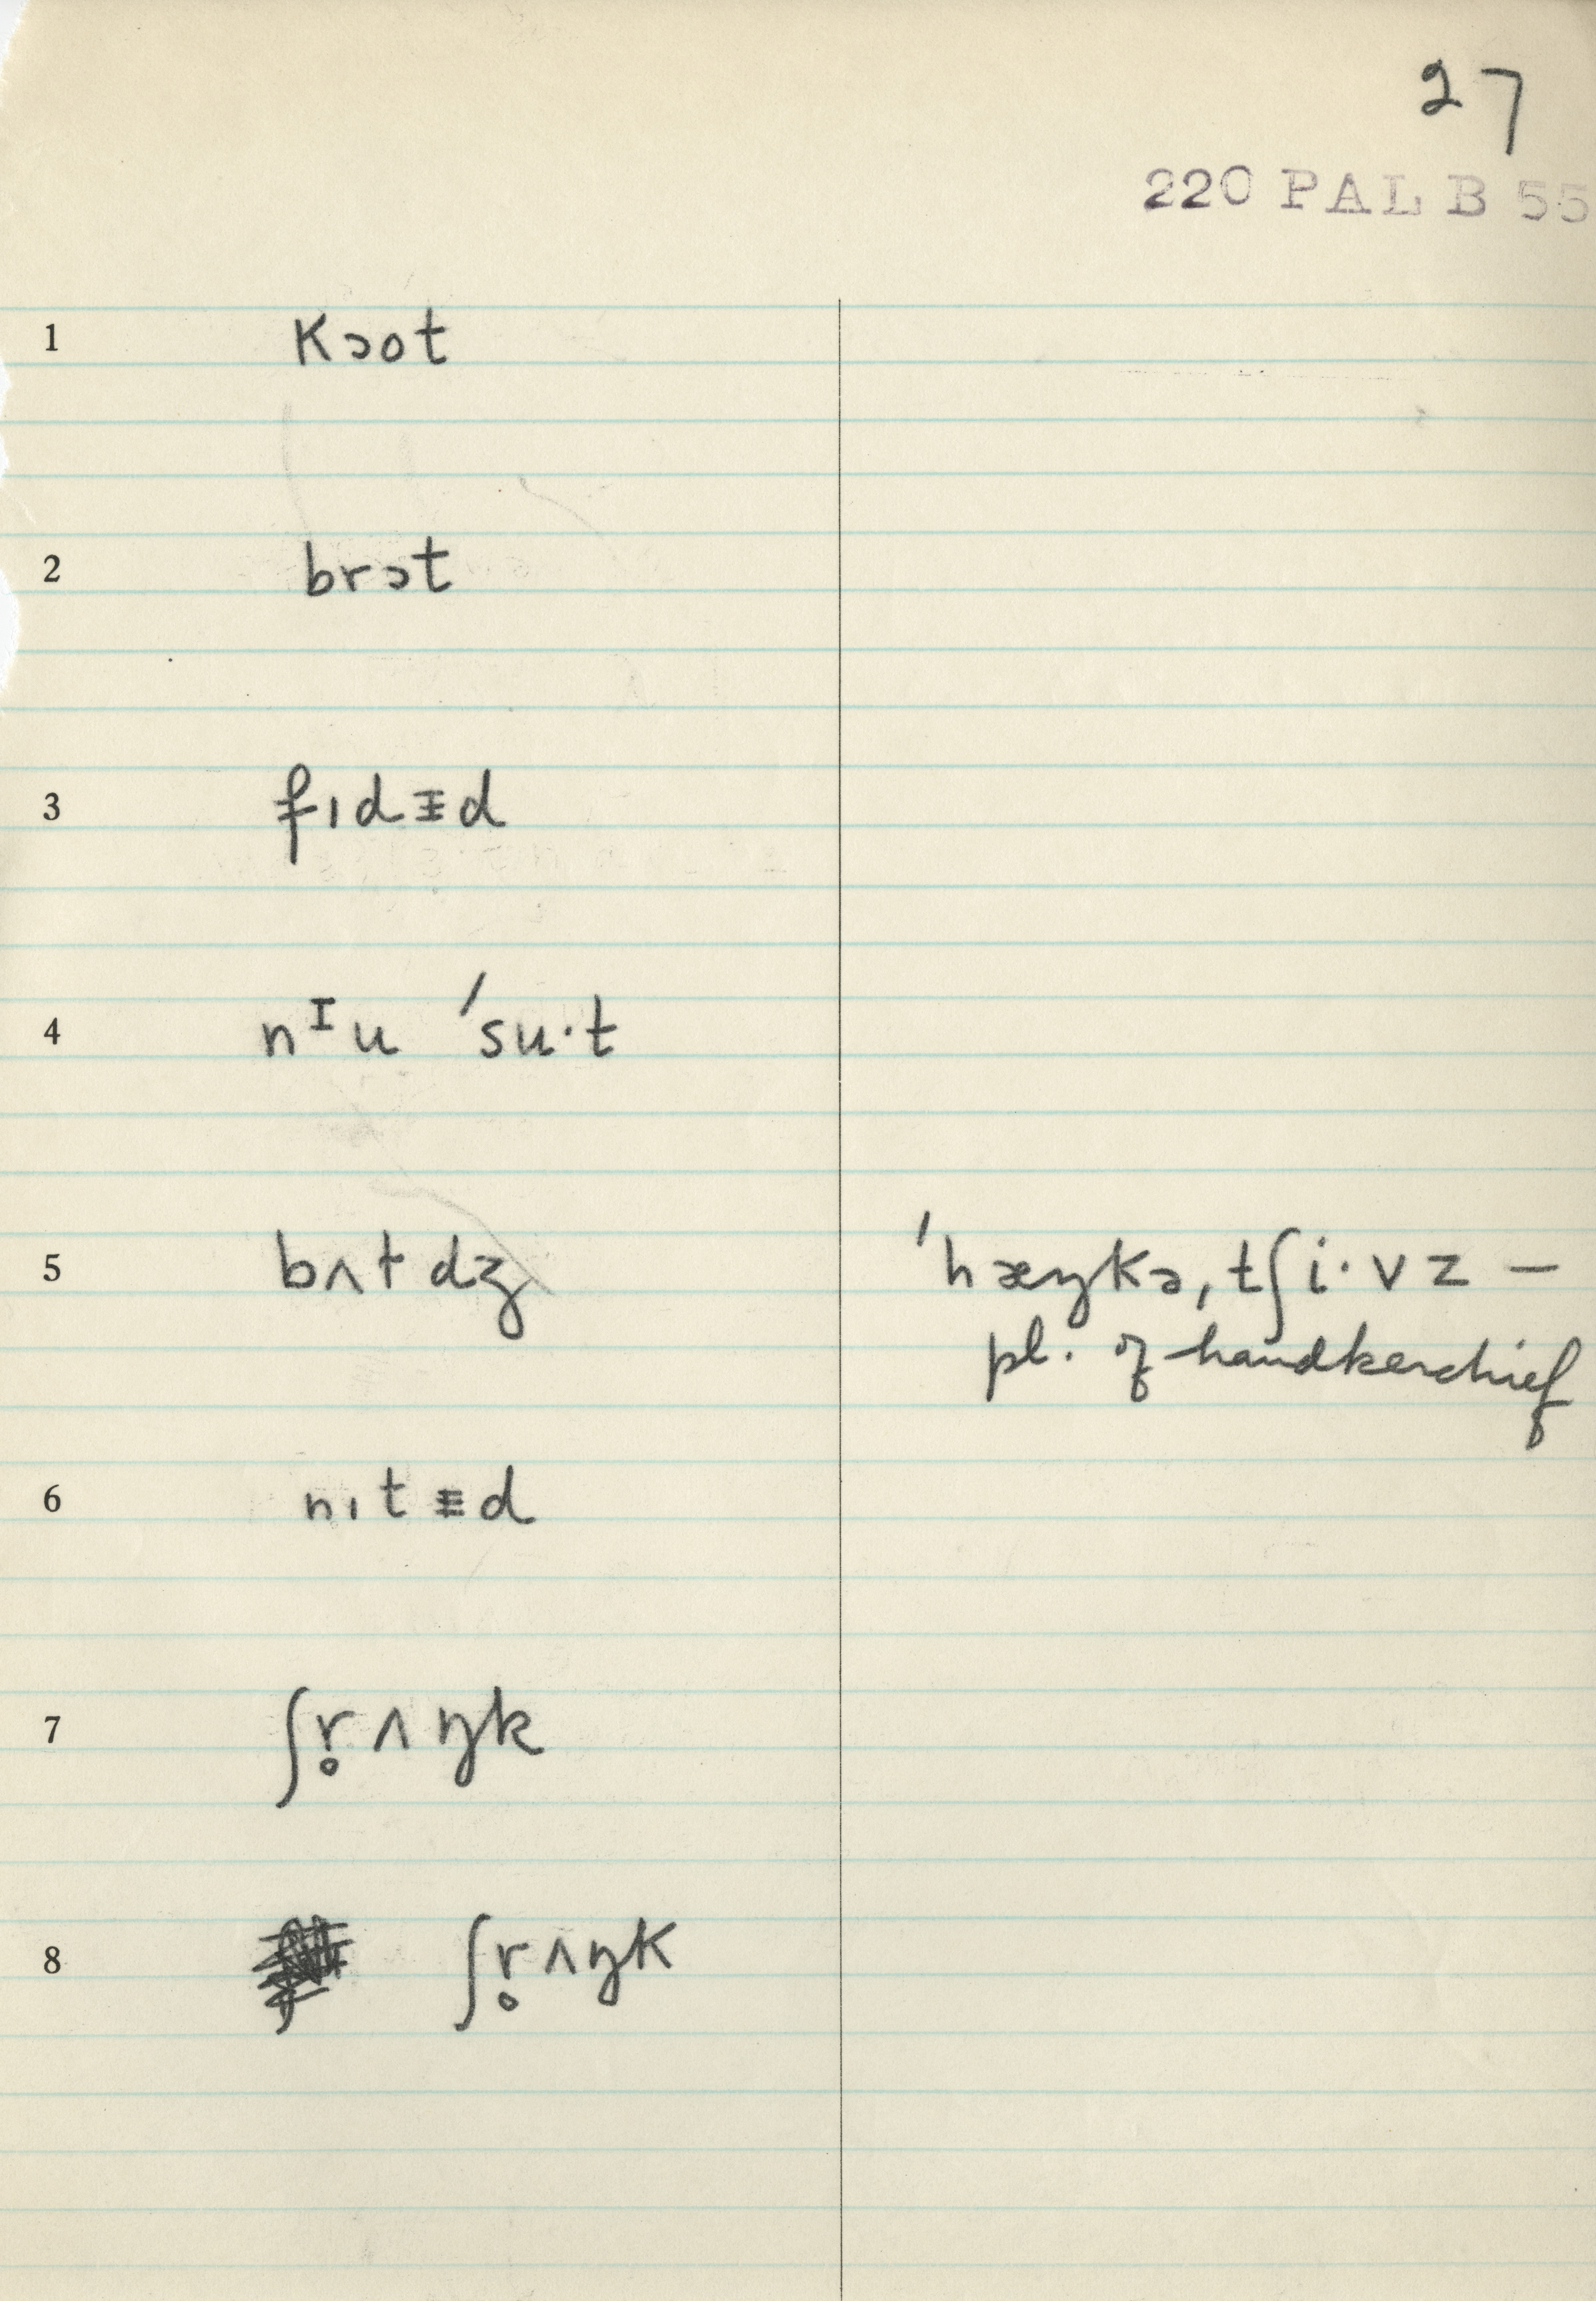 27
220 PAL B 55
1 kɔot
2 brɔt
3 fɪdᵻd
4 nᶦu ˈsu·t
5 bʌtdʒ ˈhæŋkəˌtʃi·vz –
pl. of handkerchief
6 nɪtᵻd
7 ʃr̥ʌŋk
8 ʃr̥ʌŋk